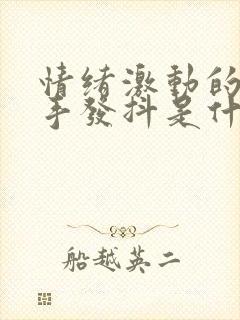 情绪激動的
手發抖是什
船越英二